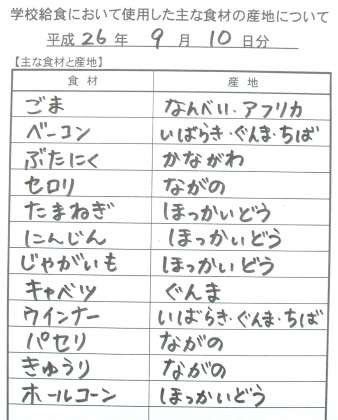 学校給食において使用した主な食材の産地について
平成 26 年 9 月 10 日分
【主な食材と産地】
食材 産地
ごま なんべい・アフリカ
ベーコン いばらき・ぐんま・ちば
ぶたにく かながわ
セロリ ながの
たまねぎ ほっかいどう
にんじん ほっかいどう
じゃがいも ほっかいどう
キャベツ ぐんま
ウインナー いばらき・ぐんま・ちば
パセリ ながの
きゅうり ながの
ホールコーン ほっかいどう